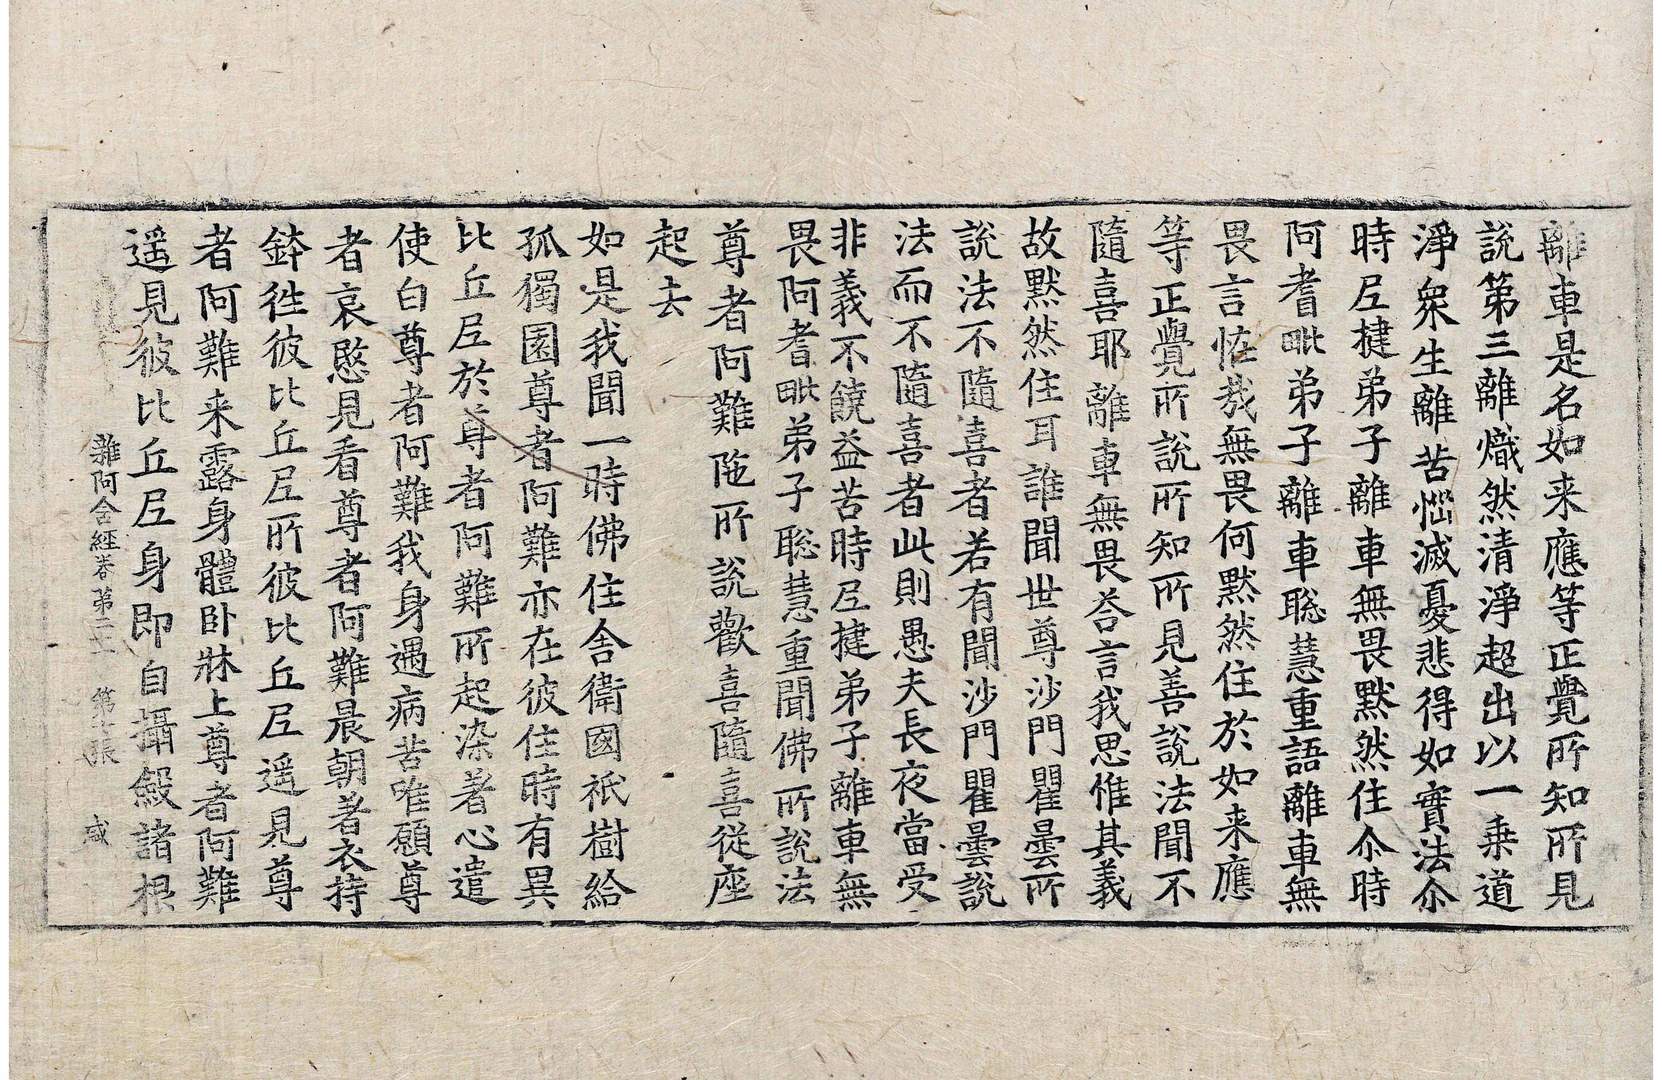 離車是名如来應等正覺所知所見
說第三離熾然清淨超出以一乗道
淨衆生離苦惱滅憂悲得如實法尒
時尼揵弟子離車無畏黙然住尒時
阿耆毗弟子離車聡慧重語離車無
畏言恠㢤無畏何黙然住於如来應
等正覺所說所知所見善說法聞不
隨喜耶離車無畏荅言我思惟其義
故黙然住耳誰聞世尊沙門瞿曇所
說法不隨喜者若有聞沙門瞿曇說
法而不隨喜者此則愚夫長夜當受
非義不饒益苦時尼揵弟子離車無
畏阿耆毗弟子聡慧重聞佛所說法
尊者阿難陁所說歡喜隨喜従座
起去
如是我聞一時佛住舍衛國祇樹給
孤獨園尊者阿難亦在彼住時有異
比丘尼於尊者阿難所起染著心遣
使白尊者阿難我身遇病苦唯願尊
者哀愍見看尊者阿難晨朝著衣持
鉢徃彼比丘尼所彼比丘尼遥見尊
者阿難来露身體卧牀上尊者阿難
遥見彼比丘尼身即自攝斂諸根
雜阿含經卷第二十一 第十張 咸